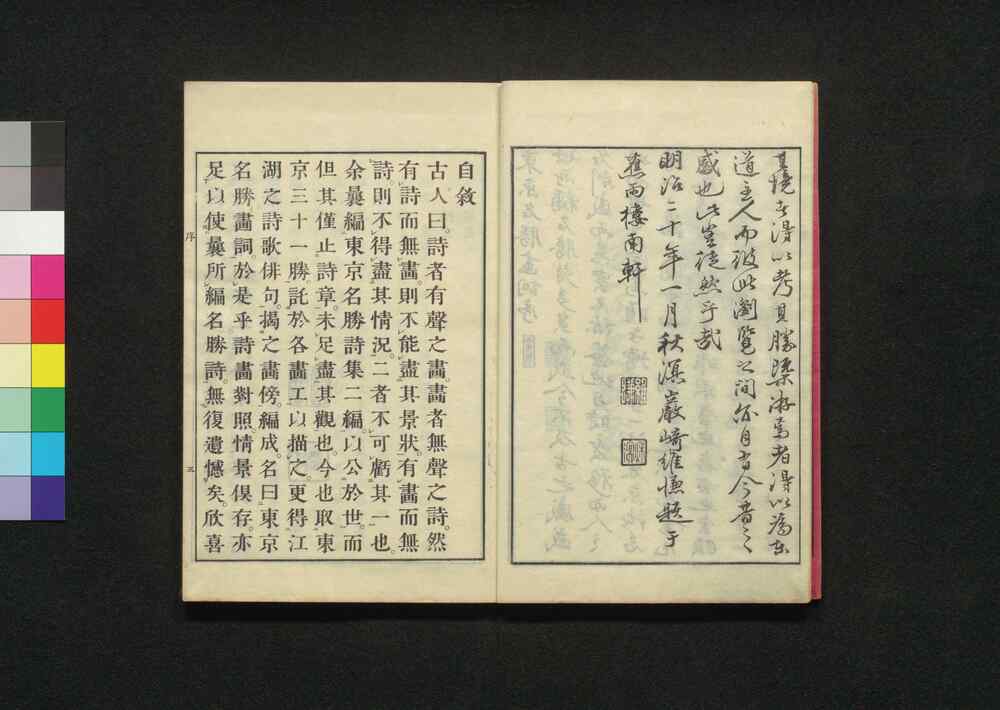 其境者得以考其勝槩游焉者得以為東
道主人而彼此瀏覽之間亦自有今昔之
感也此豈徒然乎哉
明治二十年一月秋溟巖崎維慊題于
蕉雨樓南軒
自敘
古人曰。詩者有聲之畫。畫者無聲之詩。然
有詩而無畫。則不能盡其景狀。有畫而無
詩則不得盡其情況。二者不可虧其一也。
余曩編東京名勝詩集二編以公於世。而
但其僅止詩章未足盡其觀也今也取東
京三十一勝。託於各畫工以描之更得江
湖之詩歌俳句。揭之畫傍。編成。名曰東京
名勝畫詞。於是乎詩畫對照。情景俱存。亦
足以使曩所編名勝詩。無復遺憾矣。欣喜
序
五